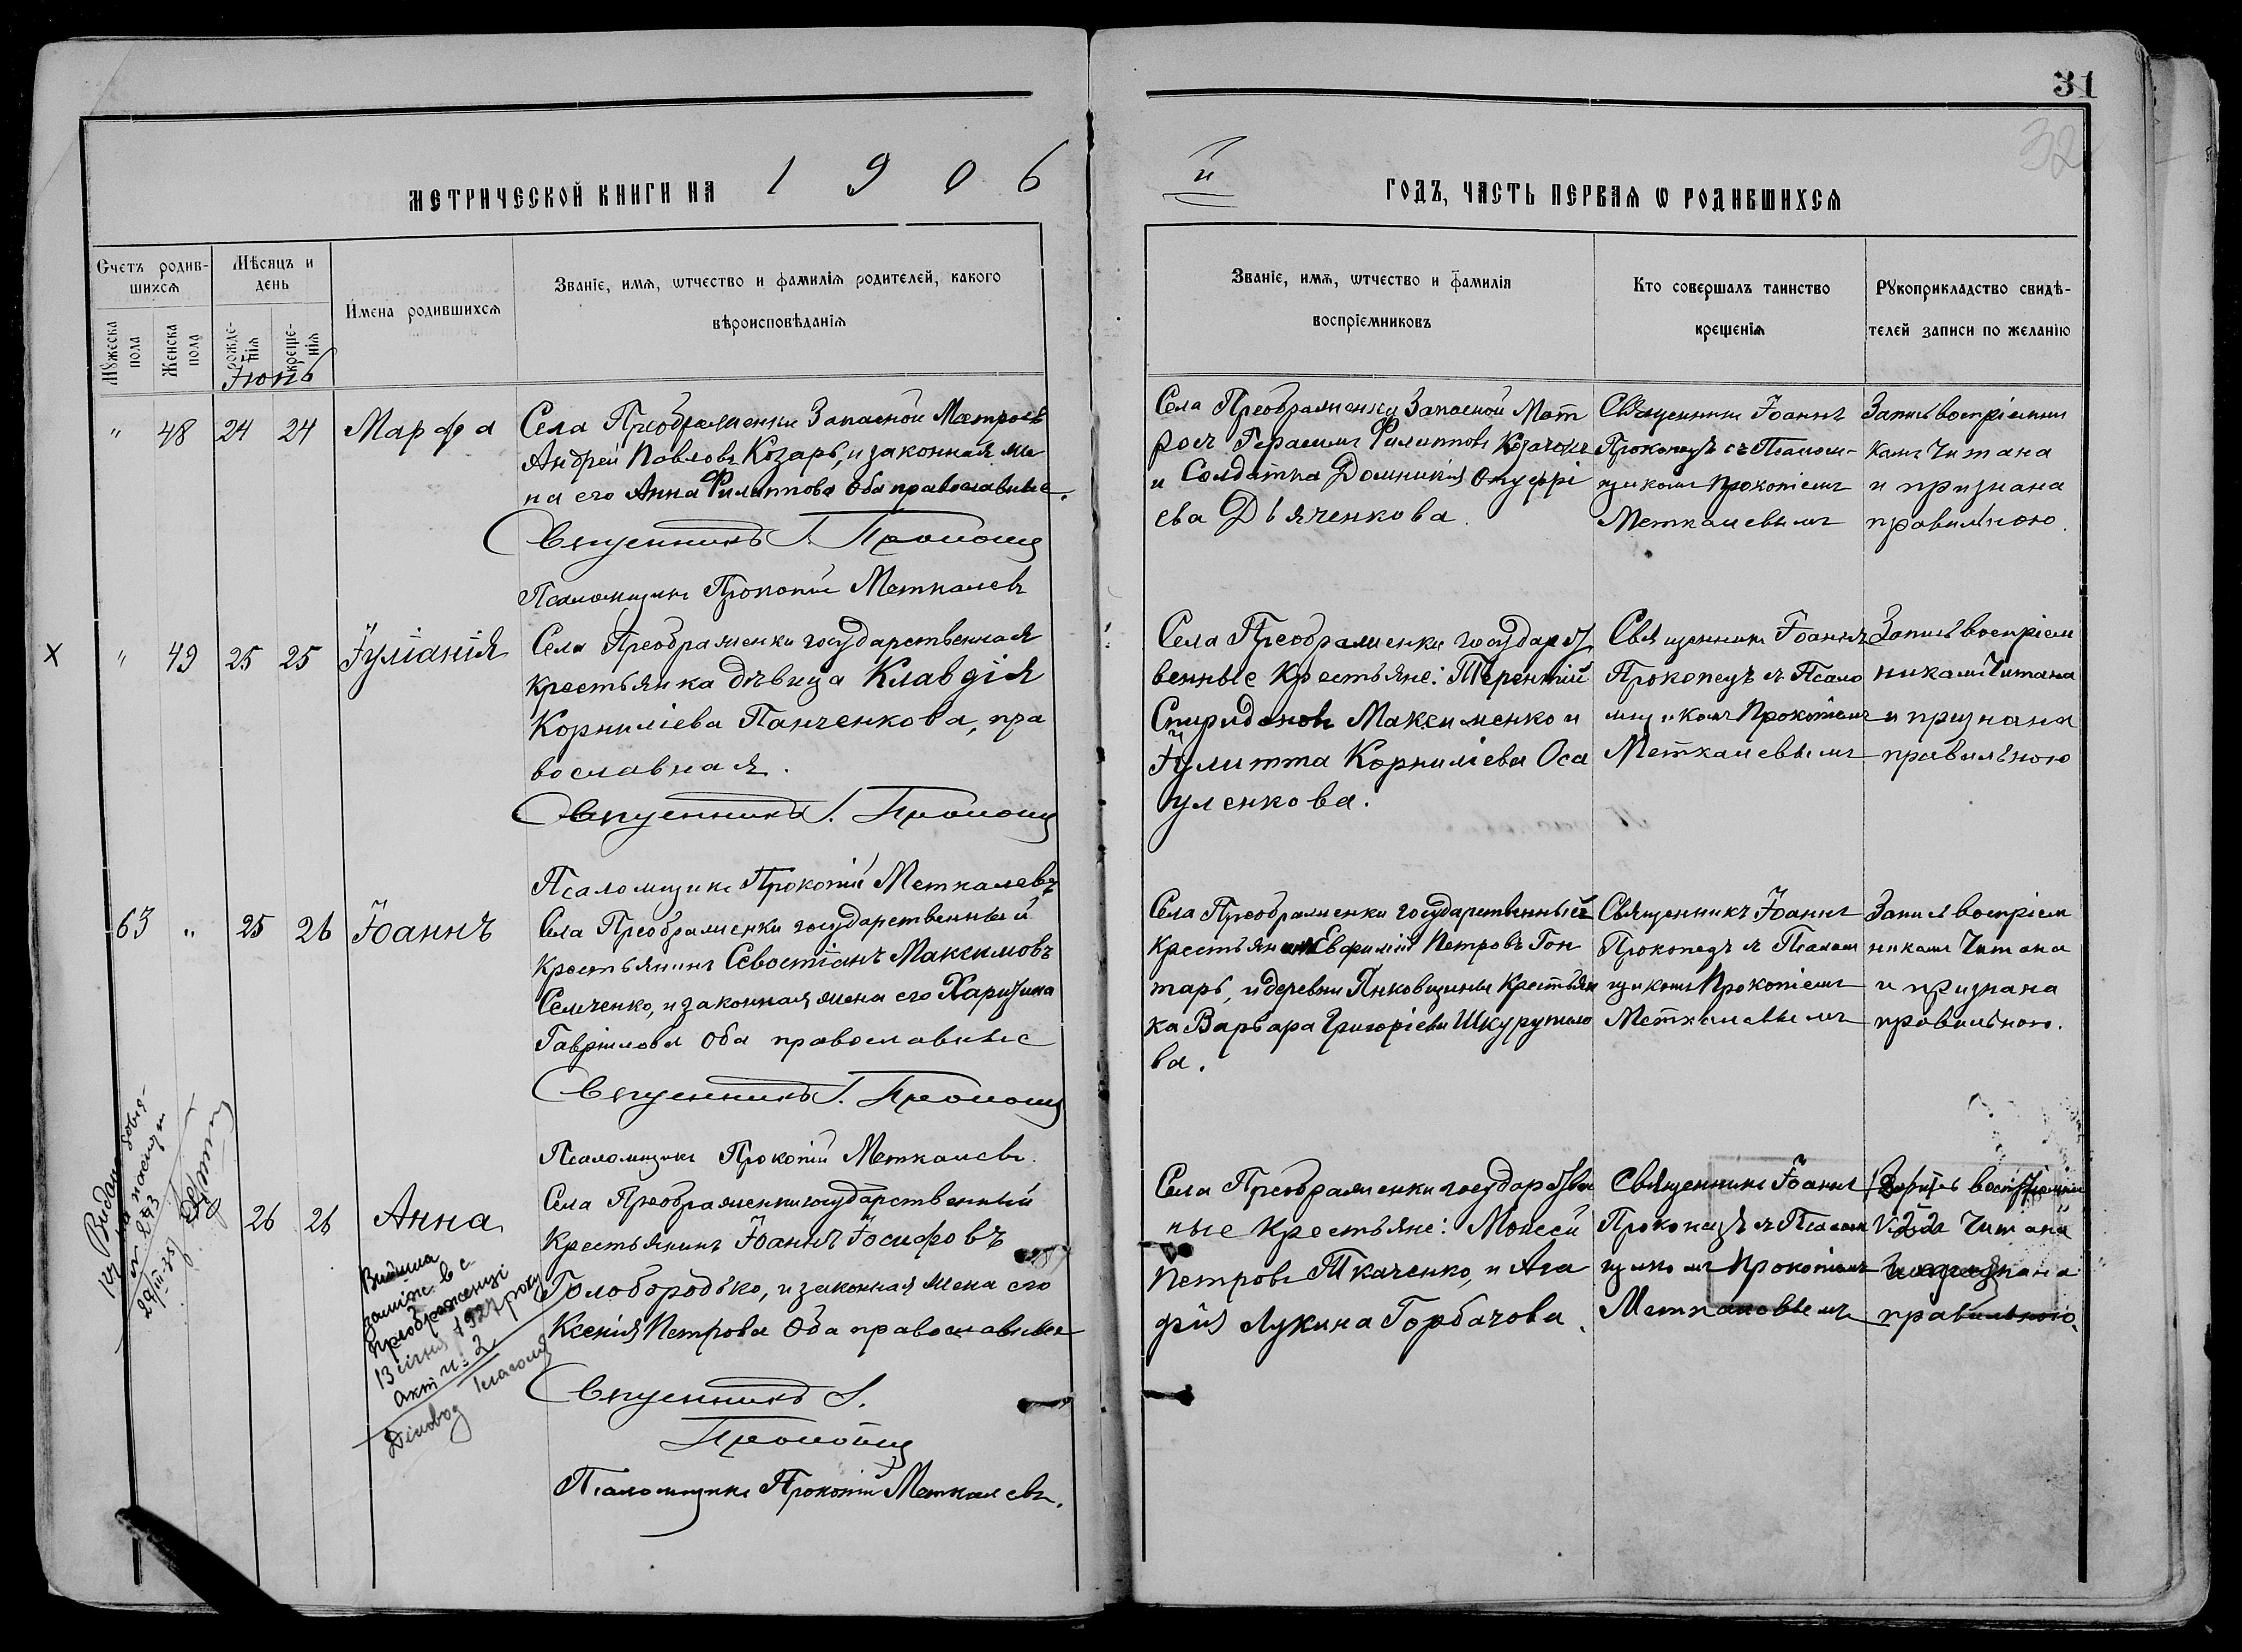 31
32
МЕТРИЧЕСКОЙ КНИГИ НА 1906
й ГОДЪ, ЧАСТЬ ПЕРВАЯ Ѡ РОДИВШИХСЯ
Счетъ родив-
шихся
Мужеска
пола
Женска
пола
Мѣсяцъ и
день
рожде-
нія
креще-
нія
Іюнь
Имена родившихся
Званіе, имя, ѡтчество и фамилія родителей, какого
вѣроисповѣданія
Званіе, имя, ѡтчество и фамилія
воспріемниковъ
Кто совершалъ таинство
крещенія
Рукоприкладство свидѣ-
телей записи по желанію
" 48 24 24 Марфа
Села Преображенки Запасной Матросъ
Андрей Павловъ Козарь, и законная же
на его Анна Филиппова оба православные.
Священникъ І. Прокопец
Псаломщикъ Прокопій Меткалевъ
Села Преображенки Запасной Мат
росъ Герасимъ Филипповъ
и Солдатка Домникія Онуфрі
ева Дьяченкова.
Священникъ Іоаннъ
Прокопецъ съ Псалом-
щикомъ Прокопіемъ
Меткалевымъ
Запись воспріемни
камъ Читана
и признана
правильною.
х " 49 25 25 Іуліанія
Села Преображенки государственная
крестьянка дѣвица Клавдія
Корниліева Панченкова, пра
вославная.
Священникъ І. Прокопец
Псаломщикъ Прокопій Меткалевъ
Села Преображенки государст
венные Крестьяне: Терентій
Спиридоновъ Максименко и
Іулитта Корниліева Оса
уленкова.
Священникъ Іоаннъ
Прокопецъ съ Псало
мщикомъ Прокопіемъ
Меткалевымъ
Запись воспріем
никамъ Читана
и признана
правильною
63 " 25 26 Іоаннъ
Села Преображенки государственный
Крестьянинъ Севостіанъ Максимовъ
Семченко, и законная жена его Харитина
Гавріилова Оба православные
Священникъ І. Прокопец
Псаломщикъ Прокопій Меткалевъ.
Села Преображенки государственный
Крестьянинъ Евфимій Петровъ Гон
тарь, и деревни Янковщины Крестьян
ка Варвара Григоріева Шкурупило
ва.
Священникъ Іоаннъ
Прокопецъ съ Псалом
щикомъ Прокопіемъ
Меткалевымъ
Запись воспріем
никамъ Читана
и признана
правильною.
Видано
29/III-
26 26 Анна
Вийшла
заміж в с.
Преображенці
13 січня 1927 року
акт н: 2
Діловод
Села Преображенки государственный
Крестьянинъ Іоаннъ Іосифовъ
Голобородько, и законная жена его
Ксенія Петрова Оба православные
Священникъ І.
Прокопец
Псаломщикъ Прокопій Меткалевъ.
Села Преображенки государствен
ные Крестьяне: Моисей
Петровъ Ткаченко, и Ага
фія Лукина Горбачова.
Священникъ Іоаннъ
Прокопецъ съ Псалом
щикомъ Прокопіемъ
Меткалевымъ
Запись воспріемни
Читана
и признана
правильною.